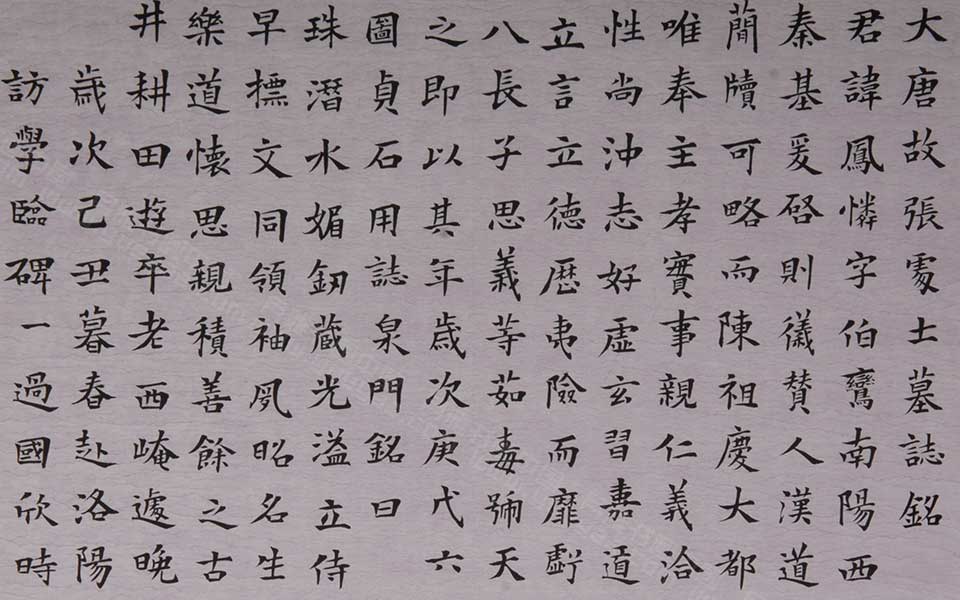 大唐故張處士墓誌銘
君諱鳳憐字伯鸞南陽西
秦基爰啓則儀賛人漢道
蕳牘可略而陳祖慶大都
唯奉主孝實事親仁義洽
性尚沖志好虛玄習嘉道
立言立德歷夷險而靡虧
八長子思義等茹毒號天
之即以其年歲次庚戌六
圖貞石用誌泉門銘曰
珠潛水媚釰蔵光溢立侍
早標文同領袖夙昭名生
樂道懷思親積善餘之古
井耕田遊卒老西崦遽晚
歲次己丑暮春赴洛陽
訪學臨碑一過國欣時